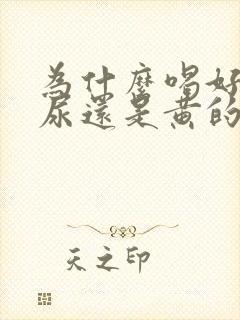 為什麼喝好
尿還是黃的
天之印